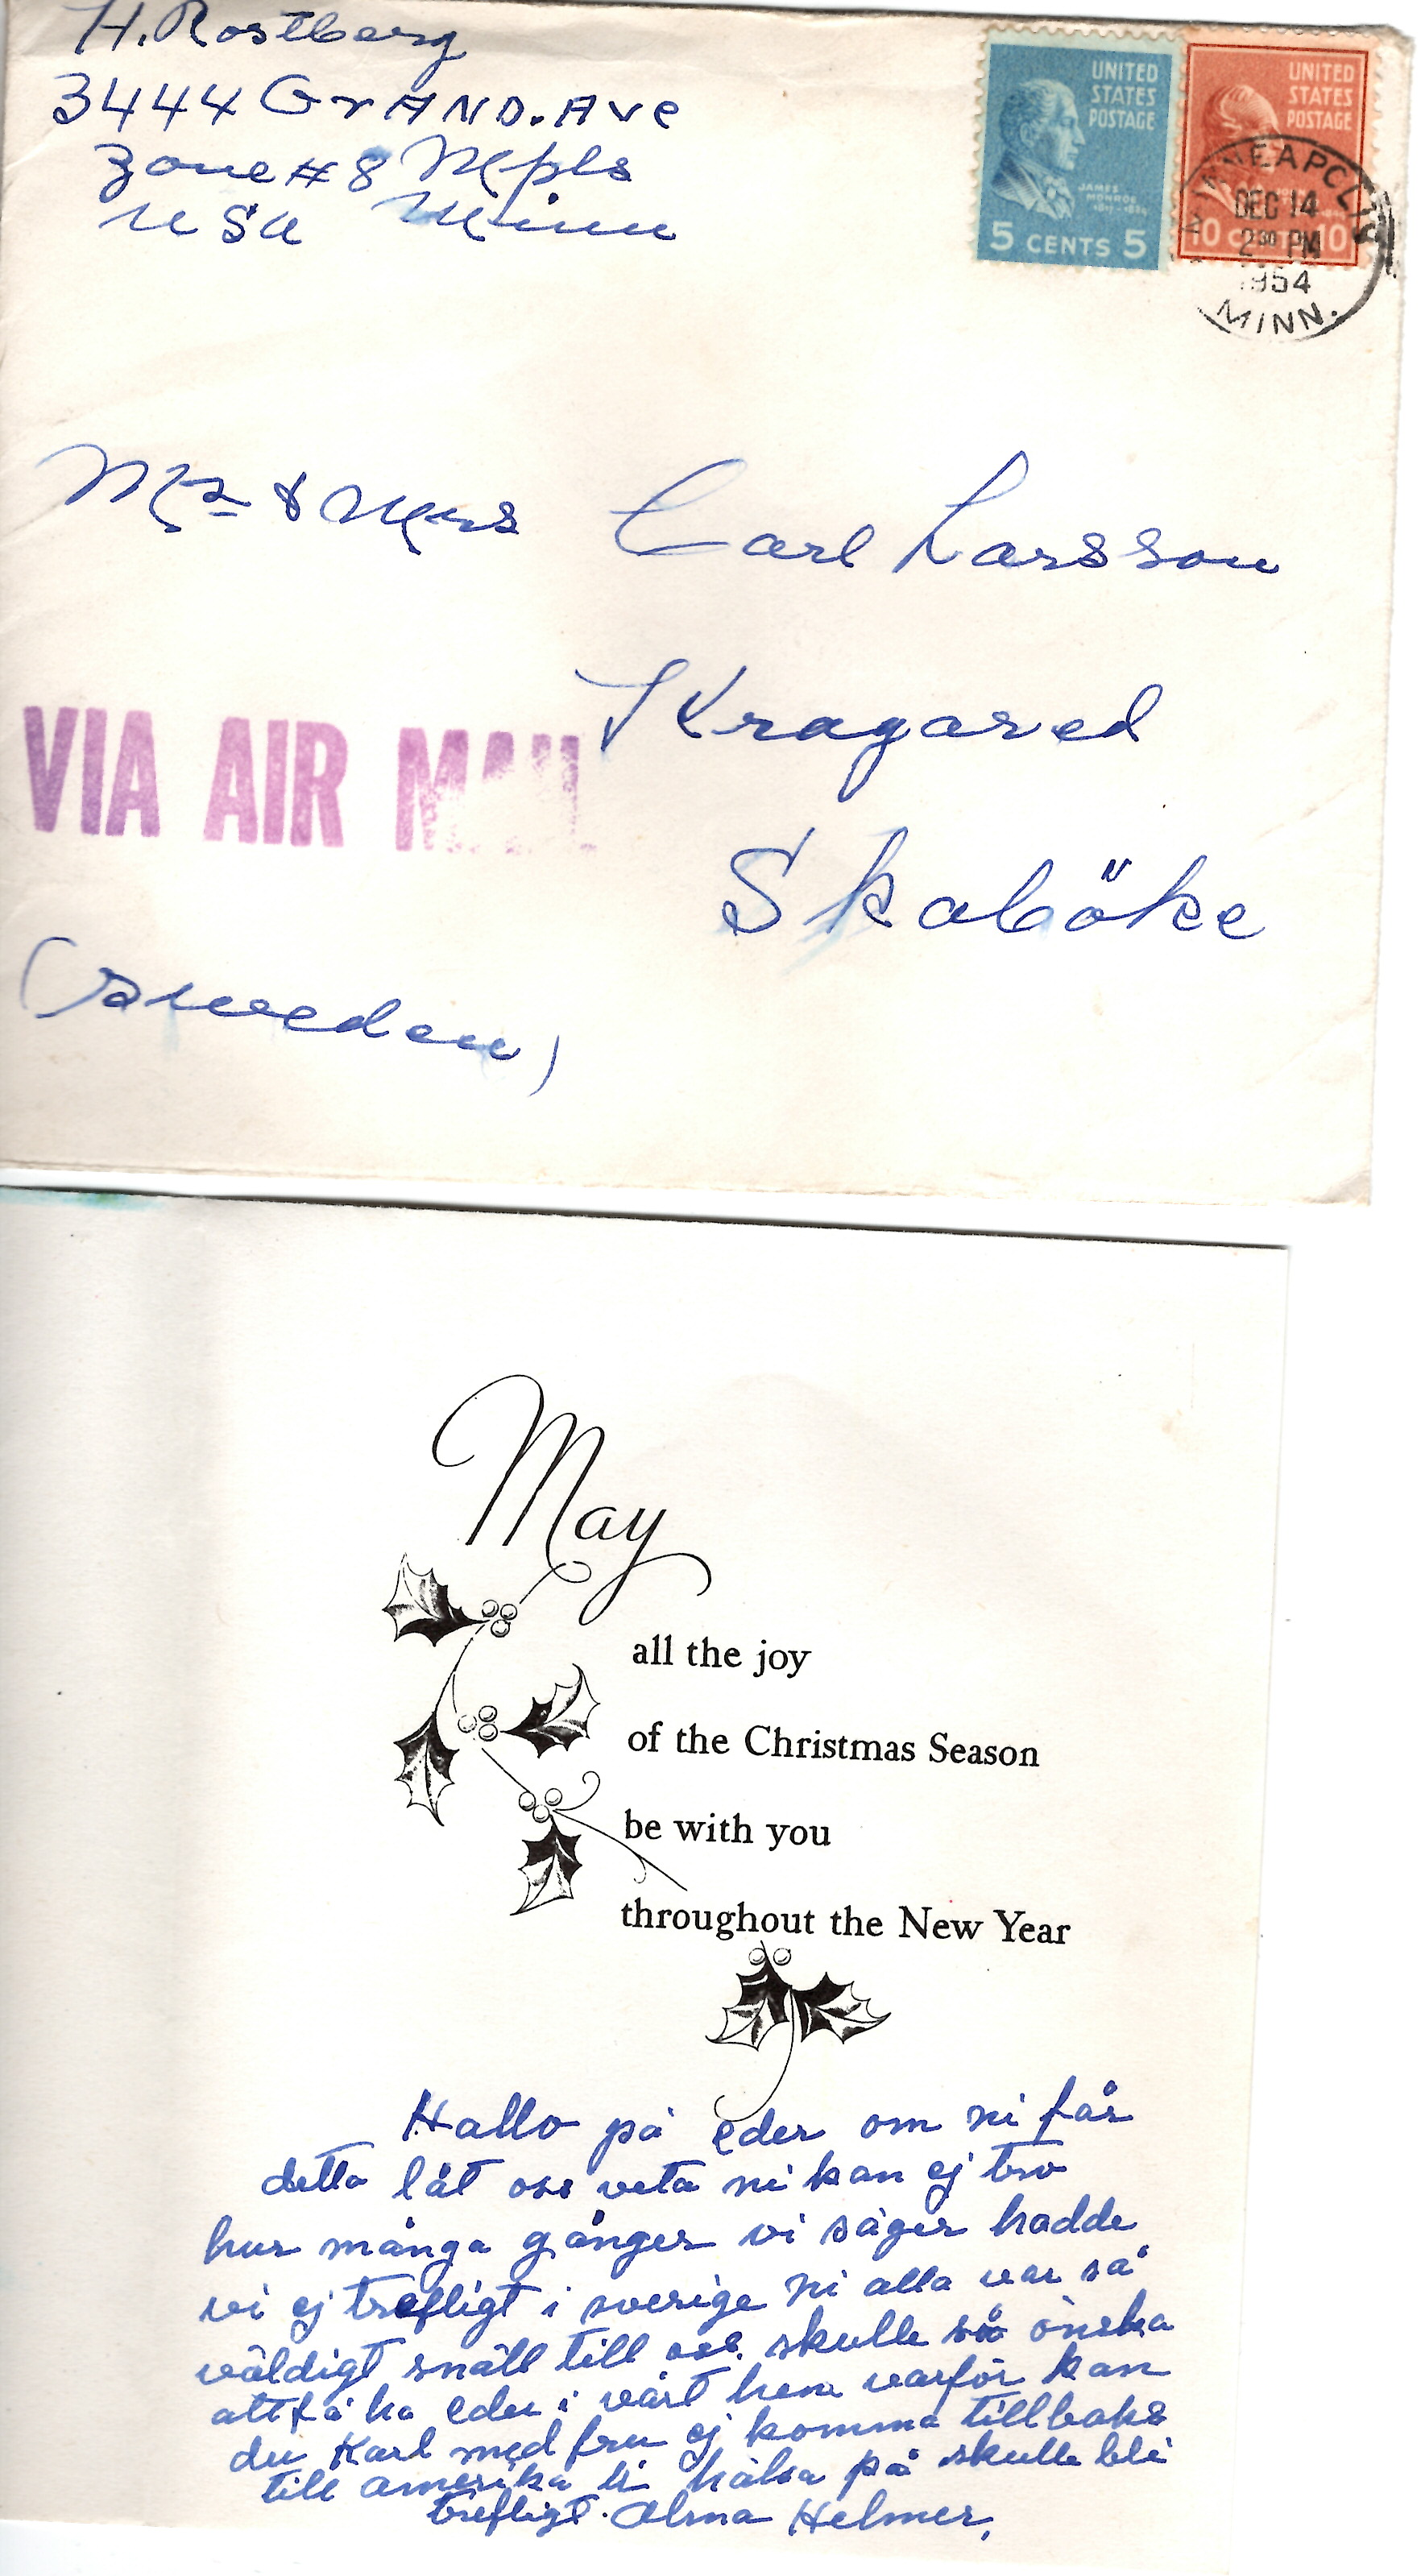 H. Rostberg
3444 GrAND. Ave
Zone #8 Mpls
USA Minn
UNITED STATES POSTAGE
JAMES MONROE
5 CENTS 5
UNITED STATES POSTAGE
10 CENTS 10
MINNEAPOLIS
DEC 14
2 30 PM
1954
MINN.
Mr & Mrs Carl Larsson
Kragared
VIA AIR MAIL
Skaböke
(Sweden)
May
all the joy
of the Christmas Season
be with you
throughout the New Year
Hallo på eder om ni får
detta låt oss veta ni kan ej tro
hur många gånger vi säger hadde
vi ej trefligt i sverige ni alla var så
väldigt snäll till oss. skulle så önska
att få ha eder i vårt hem varför kan
du Karl med fru ej komma tillbaks
till amerika hälsa på skulle bli
trefligt. Alma Helmer.